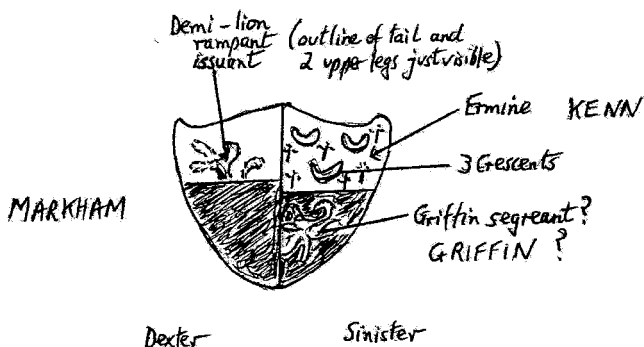 Demi-lion
rampant (outline of tail and
issuant 2 upper legs just visible)
Ermine KENN
3 Crescents
MARKHAM
Griffin segreant?
GRIFFIN ?
Dexter Sinister